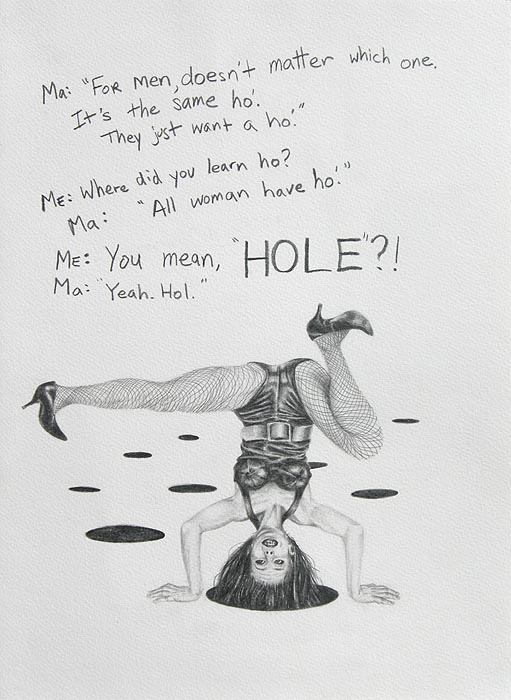 Ma: "For men, doesn't matter which one.
It's the same ho'.
They just want a ho'."
Me: Where did you learn ho?
Ma: "All woman have ho'."
Me: You mean, "HOLE"?!
Ma: "Yeah. Hol."